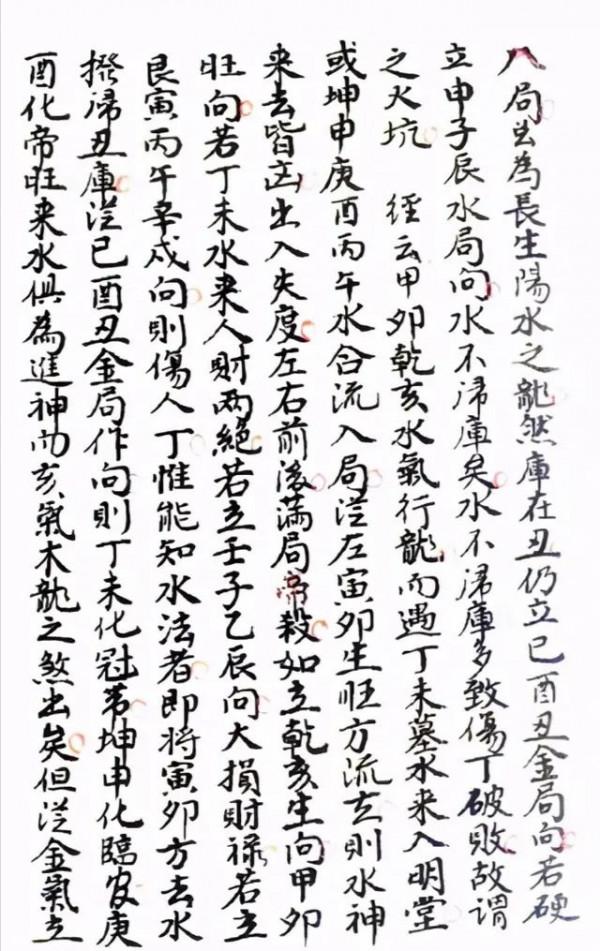 八局為長生陽水之龍然庫在丑仍立巳酉丑金局向若硬
立申子辰水局向水不歸庫矣水不歸庫多致傷丁破敗故謂
之火坑　經云甲卯乾亥水氣行龍而遇丁未墓水来入明堂
或坤申庚酉丙午水合流入局從左寅卯生旺方流去則水神
来去皆凶出入失度左右前後滿局帶殺如立乾亥生向甲卯
旺向若丁未水来人財两絕若立壬子乙辰向大損財祿若立
艮寅丙午辛戌向則傷人丁惟能知水法者即將寅卯方去水
撥歸丑庫從巳酉丑金局作向則丁未化冠帶坤申化臨官庚
酉化帝旺来水俱為進神而亥氣木龍之煞出矣但從金氣立